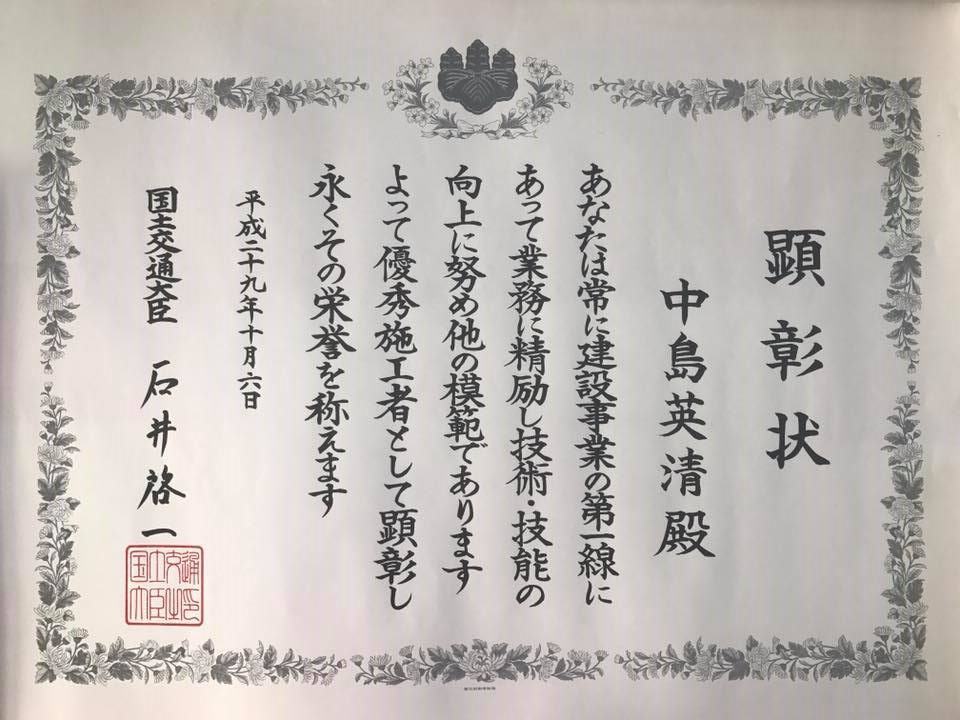 顕彰状
中島英清殿
あなたは常に建設事業の第一線に
あって業務に精励し技術・技能の
向上に努め他の模範であります
よって優秀施工者として顕彰し
永くその栄誉を称えます
平成二十九年十月六日
国土交通大臣 石井啓一